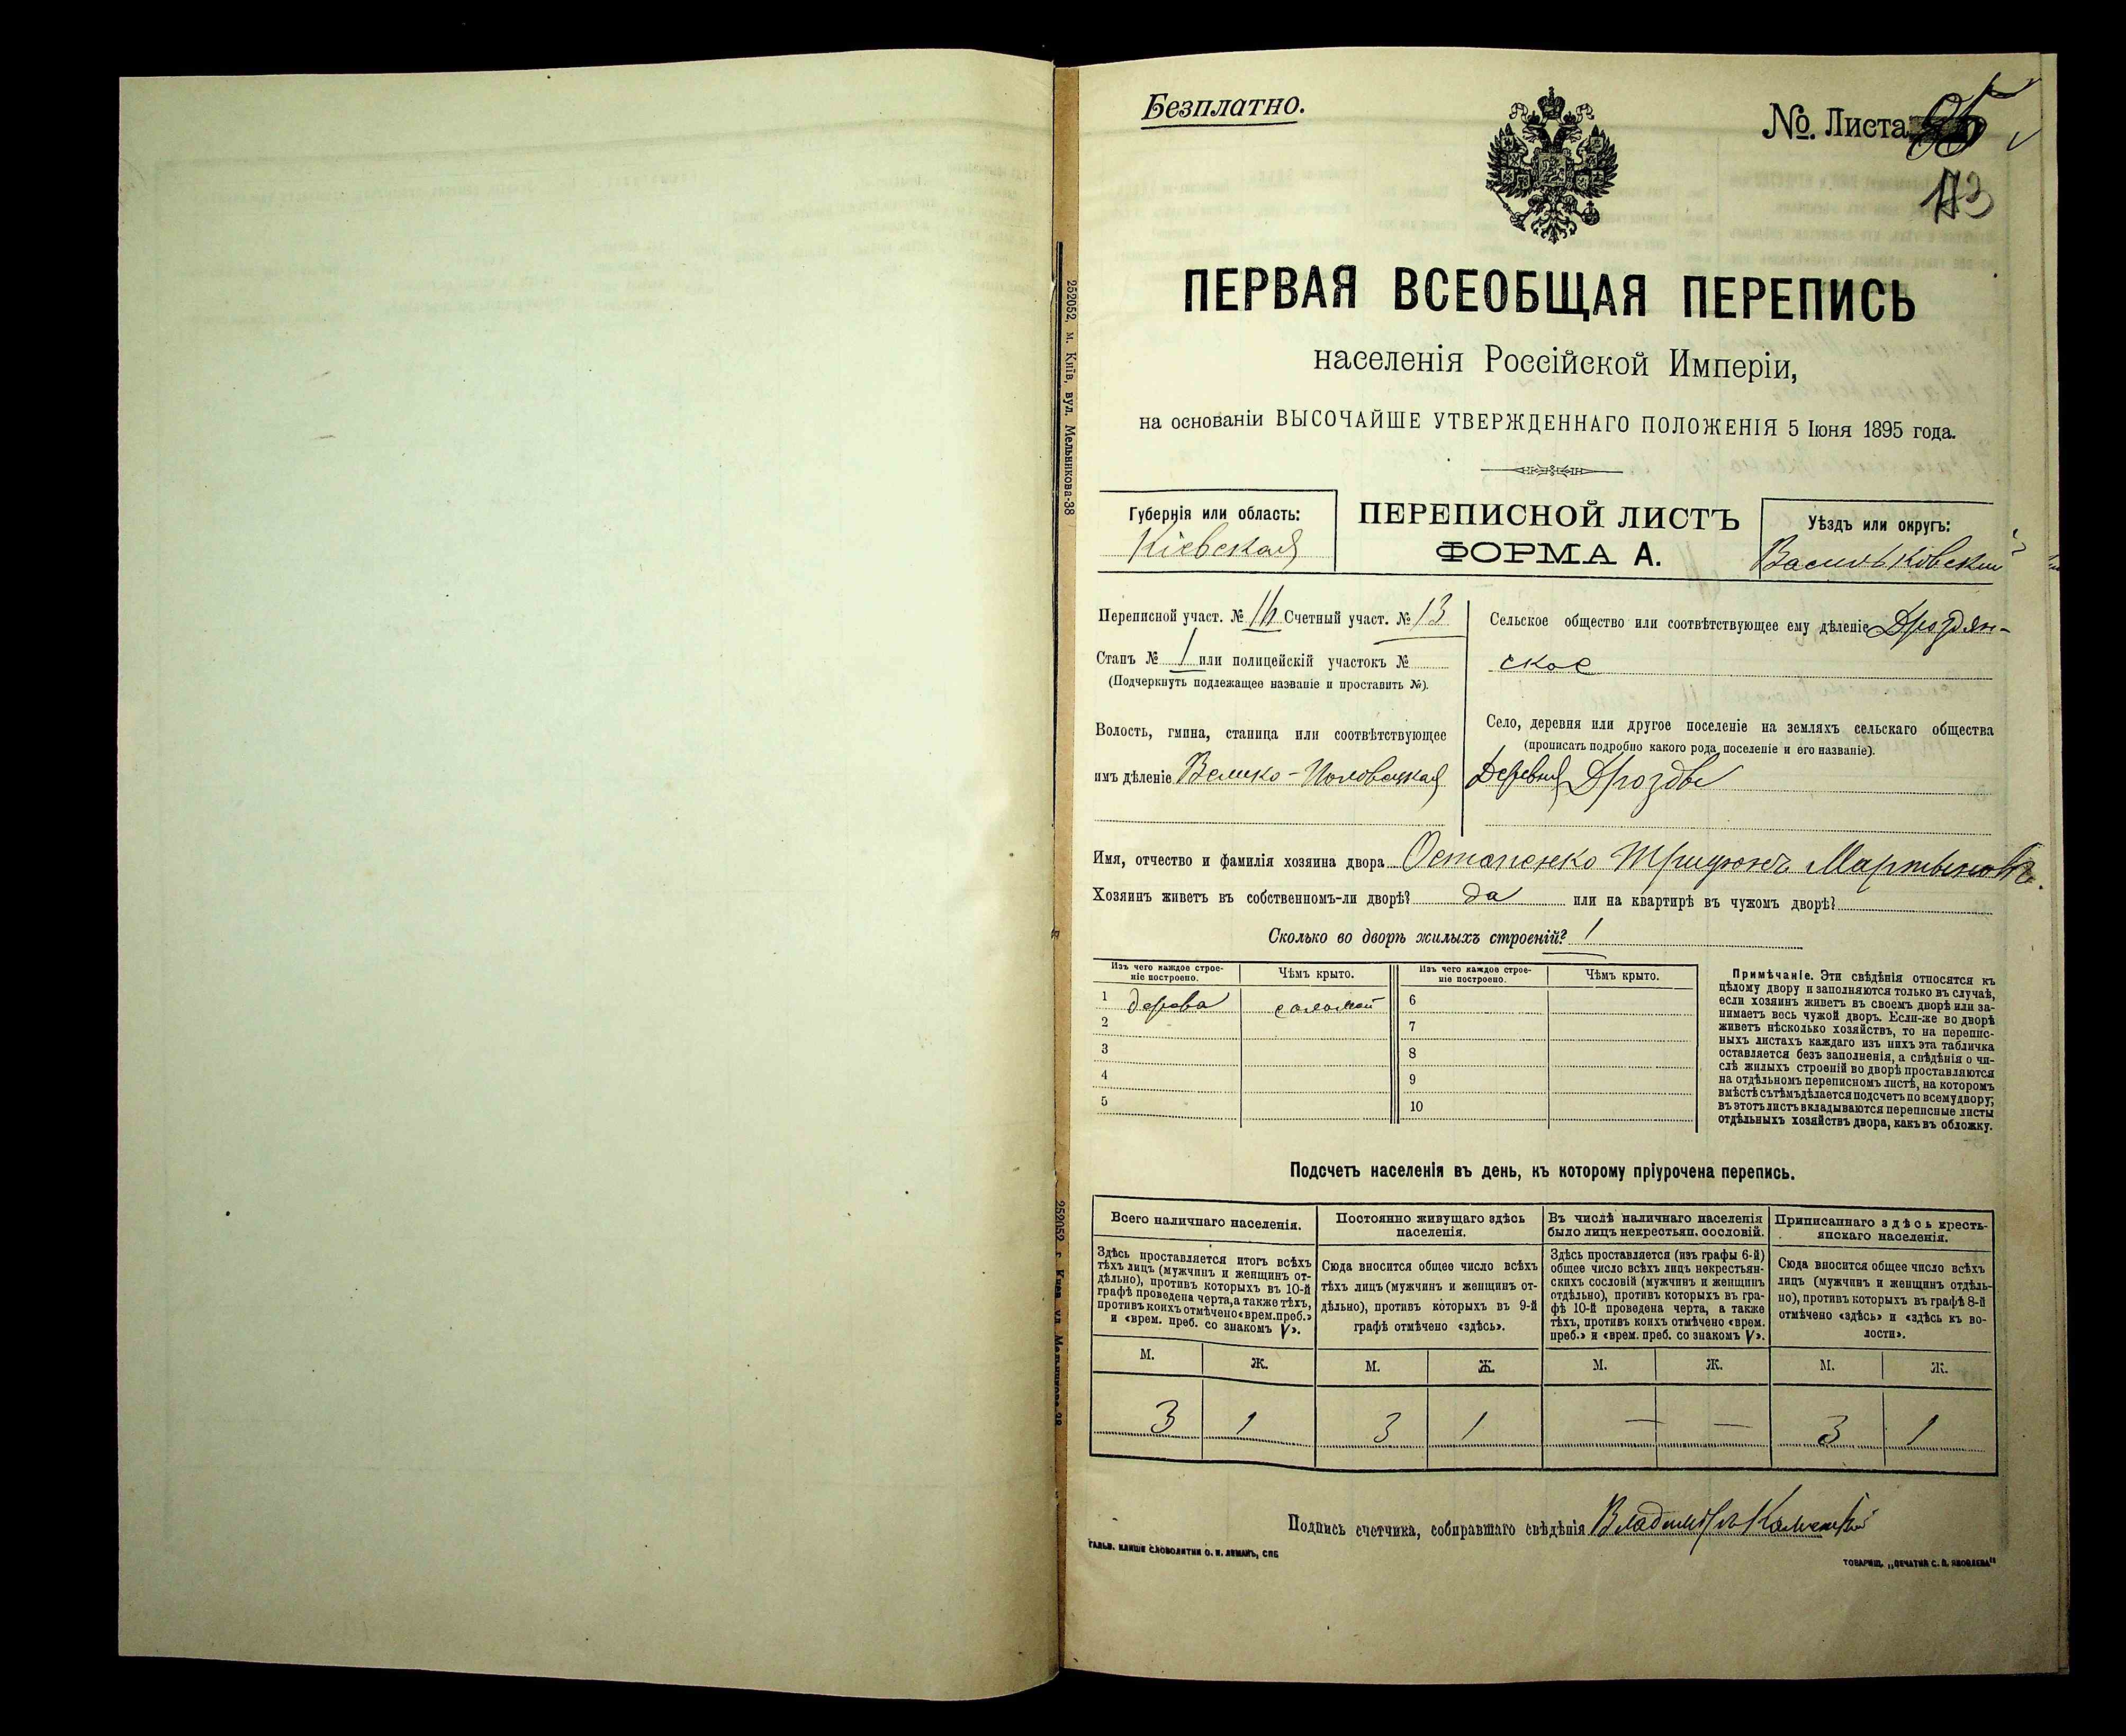 Безплатно.
№. Листа 95
113
ПЕРВАЯ ВСЕОБЩАЯ ПЕРЕПИСЬ
населенія Россійской Имперіи,
на основаніи ВЫСОЧАЙШЕ УТВЕРЖДЕННАГО ПОЛОЖЕНІЯ 5 Іюня 1895 года.
Губернія или область:
Кіевская
ПЕРЕПИСНОЙ ЛИСТЪ
ФОРМА А.
Уѣздъ или округъ:
Васильковскій
Переписной участ. № 16 Счетный участ. № 13
Станъ № 1 или полицейскій участокъ №
(Подчеркнуть подлежащее названіе и проставить №).
Волость, гмина, станица или соотвѣтствующее
имъ дѣленіе Велико-Половецкая
Сельское общество или соотвѣтствующее ему дѣленіе Дроздян-
ское
Село, деревня или другое поселеніе на земляхъ сельскаго общества
(прописать подробно какого рода поселеніе и его названіе).
Деревня Дрозды
Имя, отчество и фамилія хозяина двора Остапенко Трифонъ Мартыновъ.
Хозяинъ живетъ въ собственномъ-ли дворѣ? да или на квартирѣ въ чужомъ дворѣ?
Сколько во дворѣ жилыхъ строеній? 1
Изъ чего каждое строе-
ніе построено.
Чѣмъ крыто.
Изъ чего каждое строе-
ніе построено.
Чѣмъ крыто.
1 дерева соломой 6
2 7
3 8
4 9
5 10
Примѣчаніе. Эти свѣдѣнія относятся къ
цѣлому двору и заполняются только въ случаѣ,
если хозяинъ живетъ въ своемъ дворѣ или за-
нимаетъ весь чужой дворъ. Если-же во дворѣ
живетъ нѣсколько хозяйствъ, то на перепис-
ныхъ листахъ каждаго изъ нихъ эта табличка
оставляется безъ заполненія, а свѣдѣнія о чи-
слѣ жилыхъ строеній во дворѣ проставляются
на отдѣльномъ переписномъ листѣ, на которомъ
вмѣстѣ съ тѣмъ дѣлается подсчетъ по всему двору;
въ этотъ листъ вкладываются переписные листы
отдѣльныхъ хозяйствъ двора, какъ въ обложку.
Подсчетъ населенія въ день, къ которому пріурочена перепись.
Всего наличнаго населенія.
Здѣсь проставляется итогъ всѣхъ
тѣхъ лицъ (мужчинъ и женщинъ от-
дѣльно), противъ которыхъ въ 10-й
графѣ проведена черта, а также тѣхъ,
противъ коихъ отмѣчено «врем. преб.»
и «врем. преб. со знакомъ V».
Постоянно живущаго здѣсь
населенія.
Сюда вносится общее число всѣхъ
тѣхъ лицъ (мужчинъ и женщинъ от-
дѣльно), противъ которыхъ въ 9-й
графѣ отмѣчено «здѣсь».
Въ числѣ наличнаго населенія
было лицъ некрестьян. сословій.
Здѣсь проставляется (изъ графы 6-й)
общее число всѣхъ лицъ некрестьян-
скихъ сословій (мужчинъ и женщинъ
отдѣльно), противъ которыхъ въ гра-
фѣ 10-й проведена черта, а также
тѣхъ, противъ коихъ отмѣчено «врем.
преб.» и «врем. преб. со знакомъ V».
Приписаннаго здѣсь кресть-
янскаго населенія.
Сюда вносится общее число всѣхъ
лицъ (мужчинъ и женщинъ отдѣль-
но), противъ которыхъ въ графѣ 8-й
отмѣчено «здѣсь» и «здѣсь къ во-
лости».
М. Ж. М. Ж. М. Ж. М. Ж.
3 1 3 1 — — 3 1
Подпись счетчика, собиравшаго свѣдѣнія Владиміръ
ГАЛЬВ. КЛИШЕ СЛОВОЛИТНИ О. И. ЛЕМАНЪ, СПБ
ТОВАРИЩ. „ПЕЧАТНЯ С. П. ЯКОВЛЕВА"
252052, м. Київ, вул. Мельникова-38